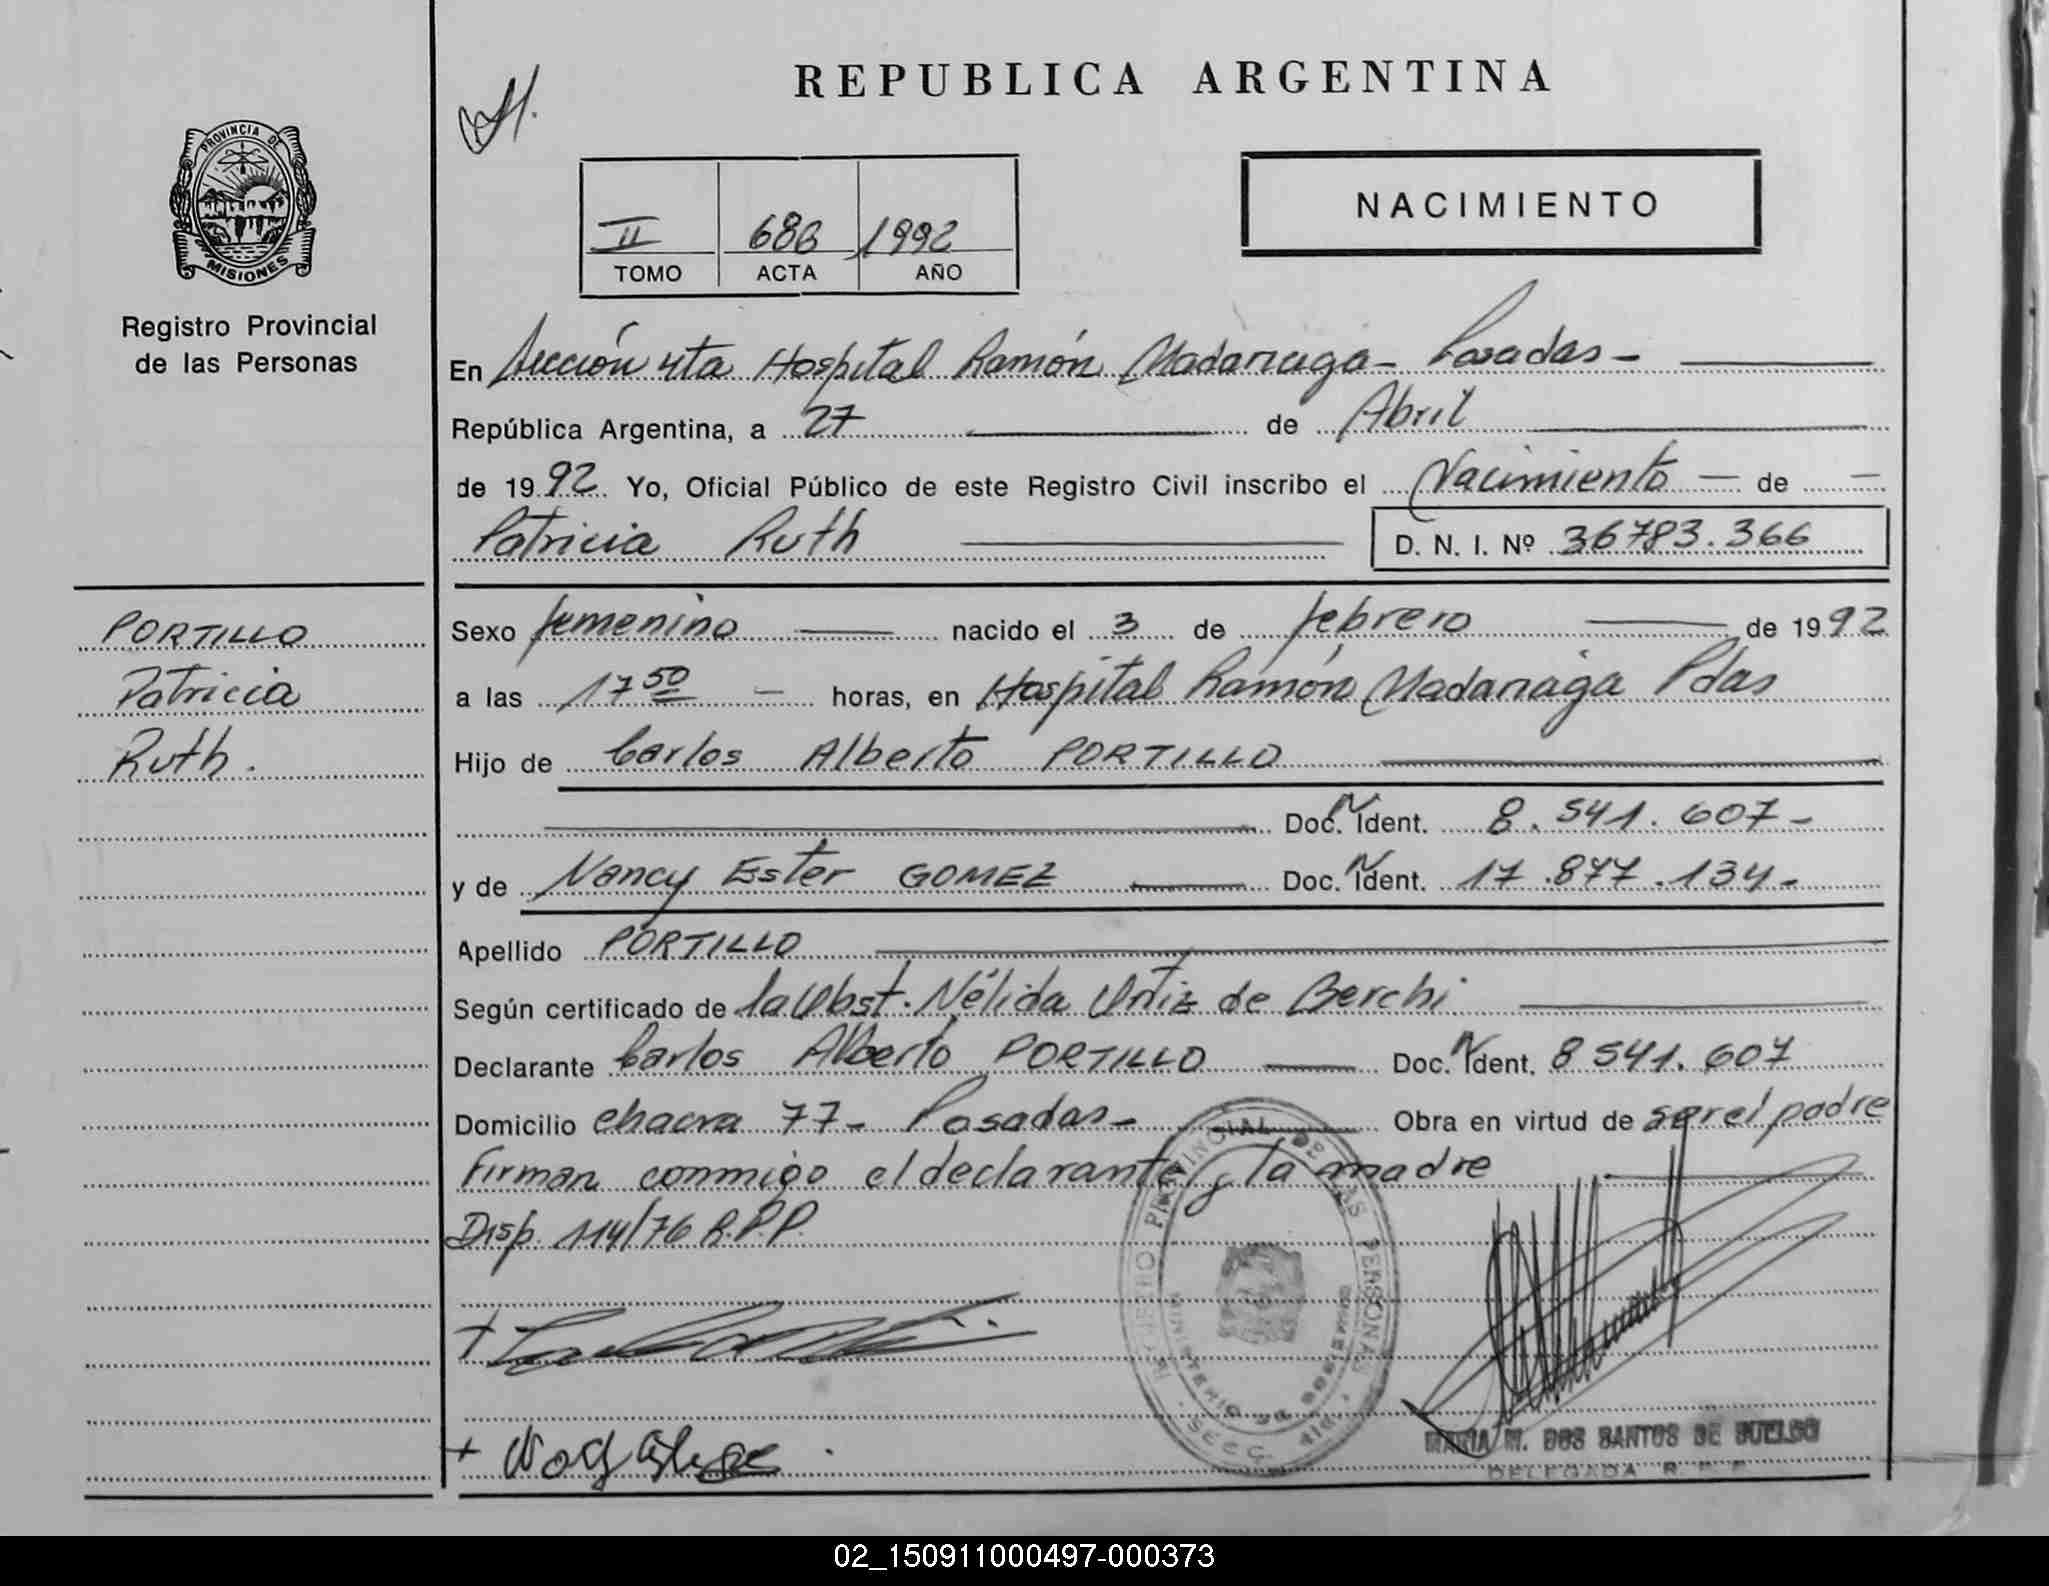 REPUBLICA ARGENTINA
PROVINCIA DE
MISIONES
Registro Provincial
de las Personas
NACIMIENTO
II 686 1992
TOMO ACTA AÑO
En Sección 4ta Hospital Ramón Madariaga - Posadas -
República Argentina, a 27 de Abril
de 1992 Yo, Oficial Público de este Registro Civil inscribo el Nacimiento - de -
Patricia Ruth D. N. I. Nº 36783.366
PORTILLO
Patricia
Ruth.
Sexo femenino nacido el 3 de febrero de 1992
a las 17 50 - horas, en Hospital Ramón Madariaga Pdas
Hijo de Carlos Alberto PORTILLO
Doc. Ident. 8.541.607-
y de Nancy Ester GOMEZ Doc. Ident. 17.877.134-
Apellido PORTILLO
Según certificado de la Obst. Nélida Ortiz de Berchi
Declarante Carlos Alberto PORTILLO Doc. Ident. 8541.607
Domicilio chacra 77- Posadas- Obra en virtud de ser el padre
Firman conmigo el declarante y la madre
Disp. 114/76 R.P.P.
REGISTRO PROVINCIAL DE LAS PERSONAS
MINISTERIO DE GOBIERNO
SECC. 4ta.
MARIA M. DOS SANTOS DE
DELEGADA R. P. P.
02_150911000497-000373